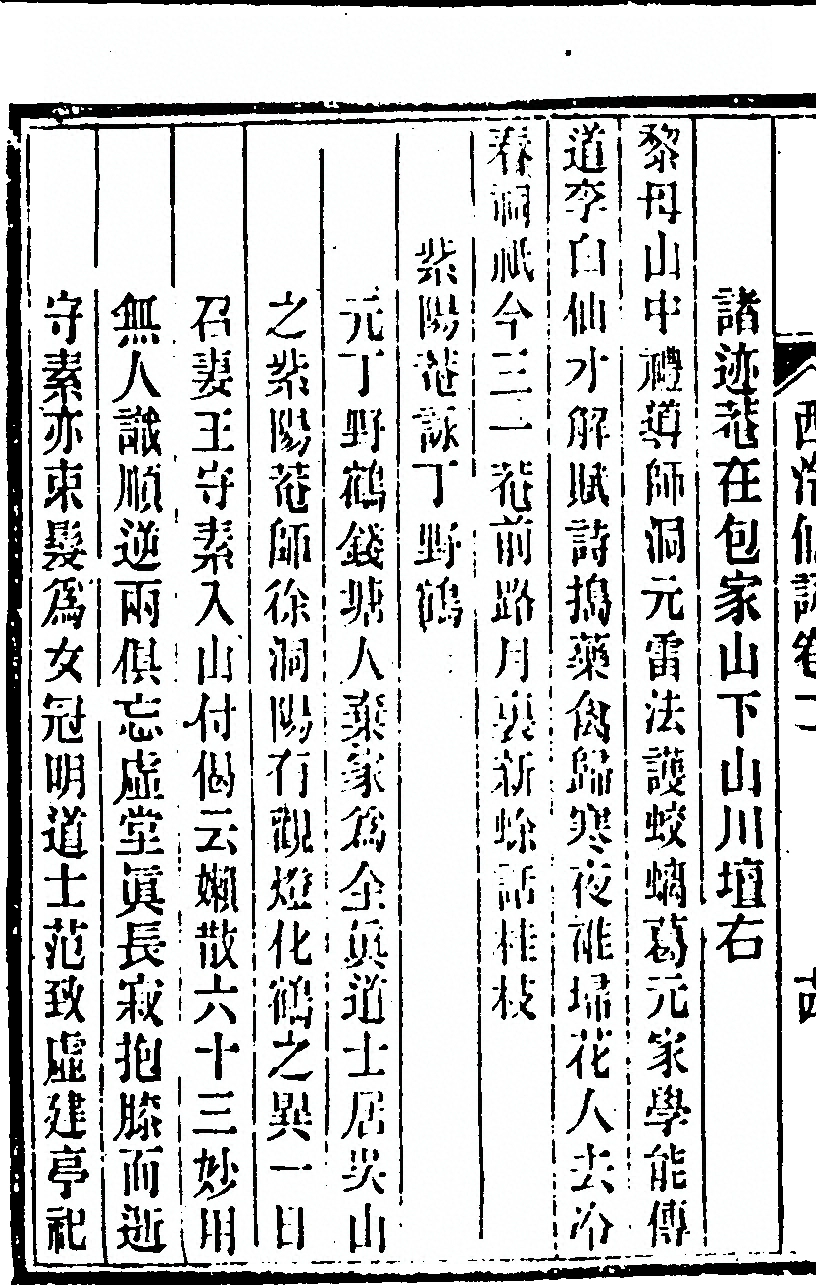 諸迹菴在包家山下山川壇右
黎母山中禮導師洞元雷法護蛟螭葛元家學能傳
道李白仙才解賦詩搗藥禽歸寒夜誰掃花人去冷
春洞祇今三一菴前路月裏新蜍話桂枝
紫陽菴詠丁野鶴
元丁野鶴錢塘人棄家為全眞道士居吳山
之紫陽菴師徐洞陽有觀燈化鶴之異一日
召妻王守素入山付偈云嬾散六十三妙用
無人識順逆兩俱忘虛堂眞長寂抱膝而逝
守素亦束髮爲女冠明道士范致虛建亭祀